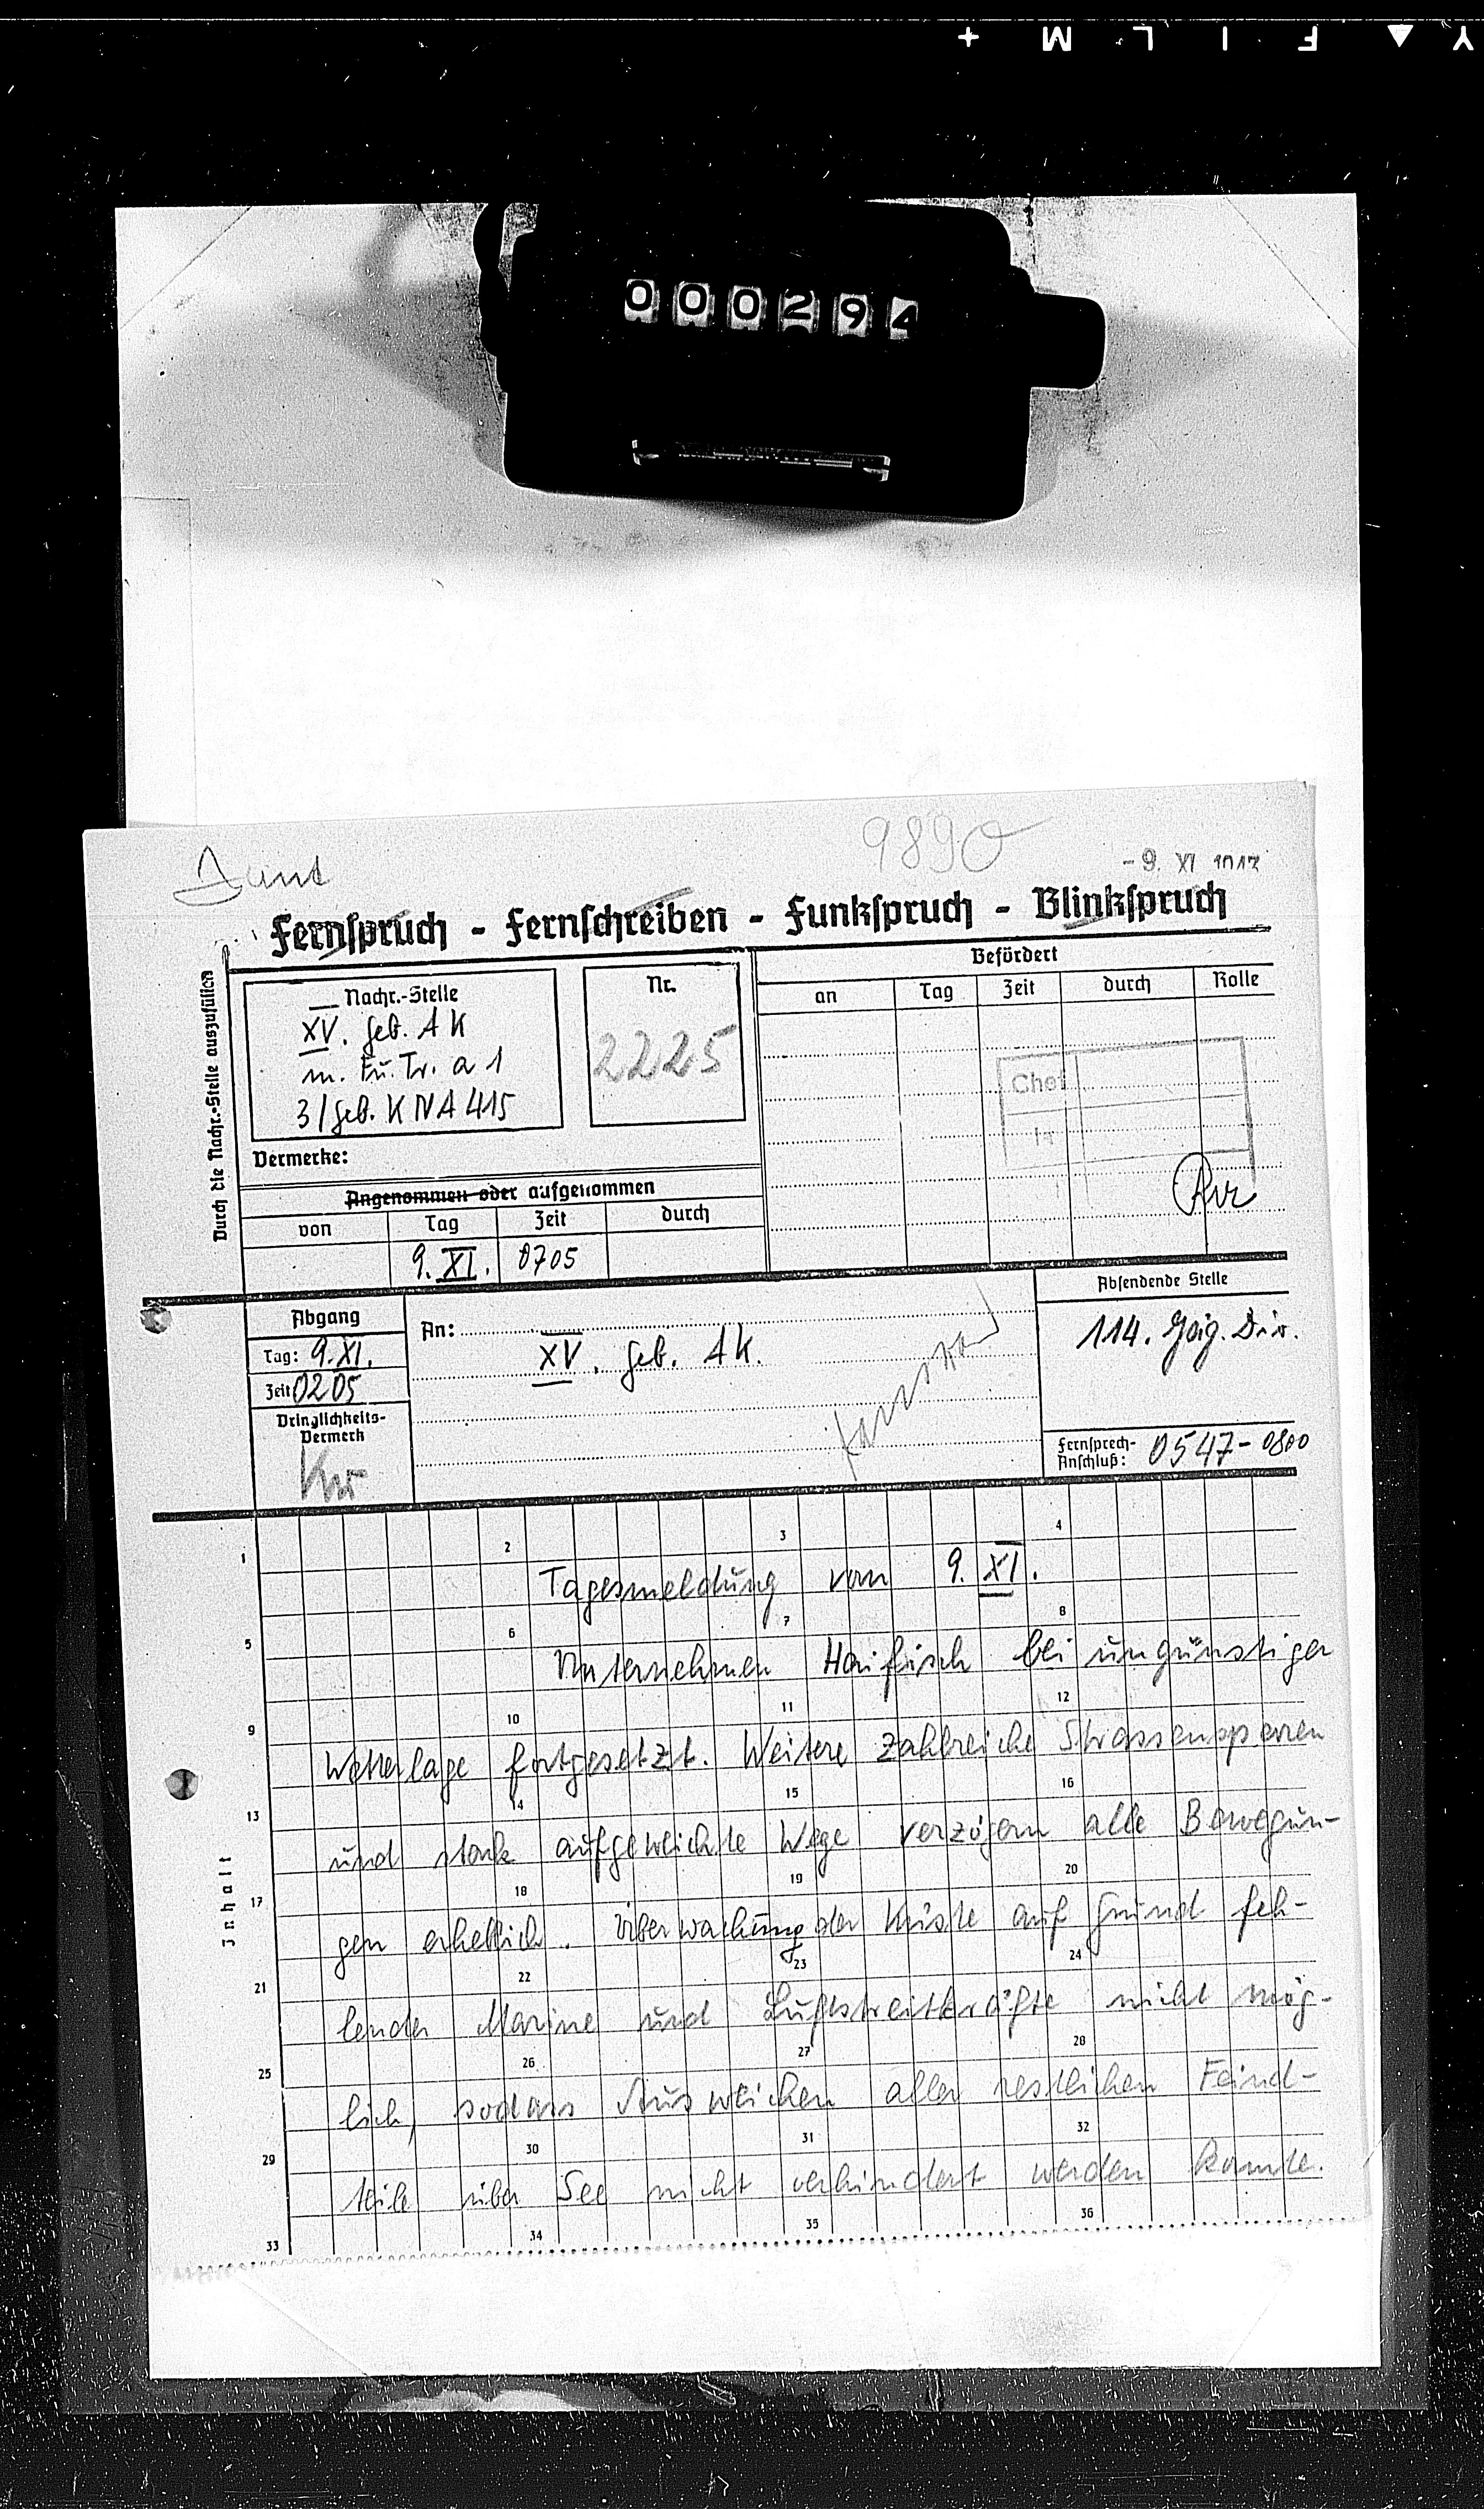 Y ▲ F I L M +
000294
9890
-9. XI 1943
Fernspruch - Fernschreiben - Funkspruch - Blinkspruch
Durch die Nachr.-Stelle auszufüllen
Nachr.-Stelle
XV. Geb. A K
m. Fu. Tr. a 1
3/Geb. K N A 415
Nr.
2225
Befördert
an Tag Zeit durch Rolle
Chef
Ia
Vermerke:
Angenommen oder aufgenommen
von Tag Zeit durch
9. XI. 0705
Abgang
Tag: 9. XI.
Zeit 0205
Dringlichkeits-
Vermerk
KR
An:
XV. Geb. AK.
Absendende Stelle
114. Jäig. Div.
Fernsprech-
Anschluß: 0547-0800
Inhalt
1 2 3 4
Tagesmeldung vom 9. XI.
5 6 7 8
Unternehmen Haifisch bei ungünstiger
9 10 11 12
Wetterlage fortgesetzt. Weitere zahlreiche Strassensperren
13 14 15 16
und stark aufgeweichte Wege verzögern alle Bewegun-
17 18 19 20
gen erheblich. Überwachung der Küste auf Grund feh-
21 22 23 24
lender Marine und Luftstreitkräfte nicht mög-
25 26 27 28
lich, sodass Ausweichen aller restlichen Feind-
29 30 31 32
teile über See nicht verhindert werden konnte.
33 34 35 36